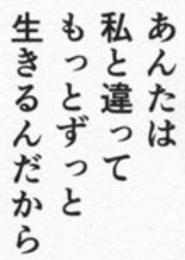 あんたは
私と違って
もっとずっと
生きるんだから